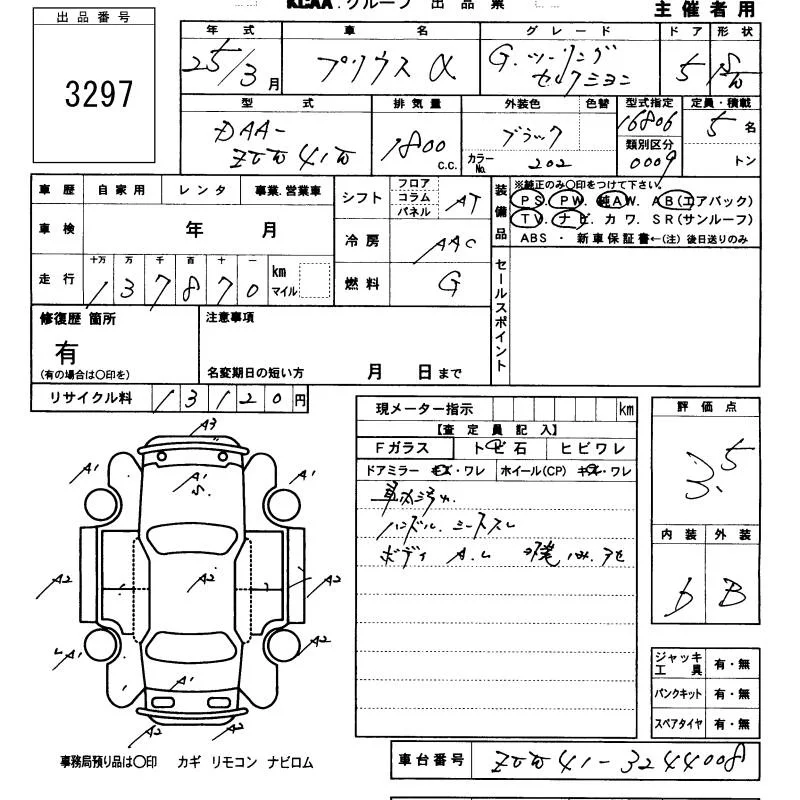 KCAA.グループ 出品票
主催者用
出品番号
3297
年式 車名 グレード ドア 形状
25/3月 プリウス α G.ツーリングセレクション 5
型式 排気量 外装色 色替 型式指定 定員・積載
DAA-
ZVW41W 1800 c.c. ブラック 16806 5名
カラーNo. 202 類別区分 0009 トン
車歴 自家用 レンタ 事業.営業車
車検 年 月
走行 十万 万 千 百 十 一
137870 km マイル
シフト フロア コラム パネル AT
冷房 AAC
燃料 G
装備品
※純正のみ〇印をつけて下さい。
PS. PW. 純AW. AB(エアバック)
TV. ナビ. カワ. SR(サンルーフ)
ABS ・ 新車保証書←(注)後日送りのみ
セールスポイント
修復歴 箇所
有
(有の場合は〇印を)
注意事項
名変期日の短い方 月 日まで
リサイクル料 13120円
現メーター指示 km
【査定員記入】
Fガラス トビ石 ヒビワレ
ドアミラー キズ・ワレ ホイール(CP) キズ・ワレ
ハンドル. シートスレ
ボディ A.U
評価点
3.5
内装 外装
D B
A3
A1 A1 A1
S.
A2 A2 A2
A1 A1 A2
A2 A2
ジャッキ工具 有・無
パンクキット 有・無
スペアタイヤ 有・無
事務局預り品は〇印 カギ リモコン ナビロム
車台番号 ZVW41-3244008